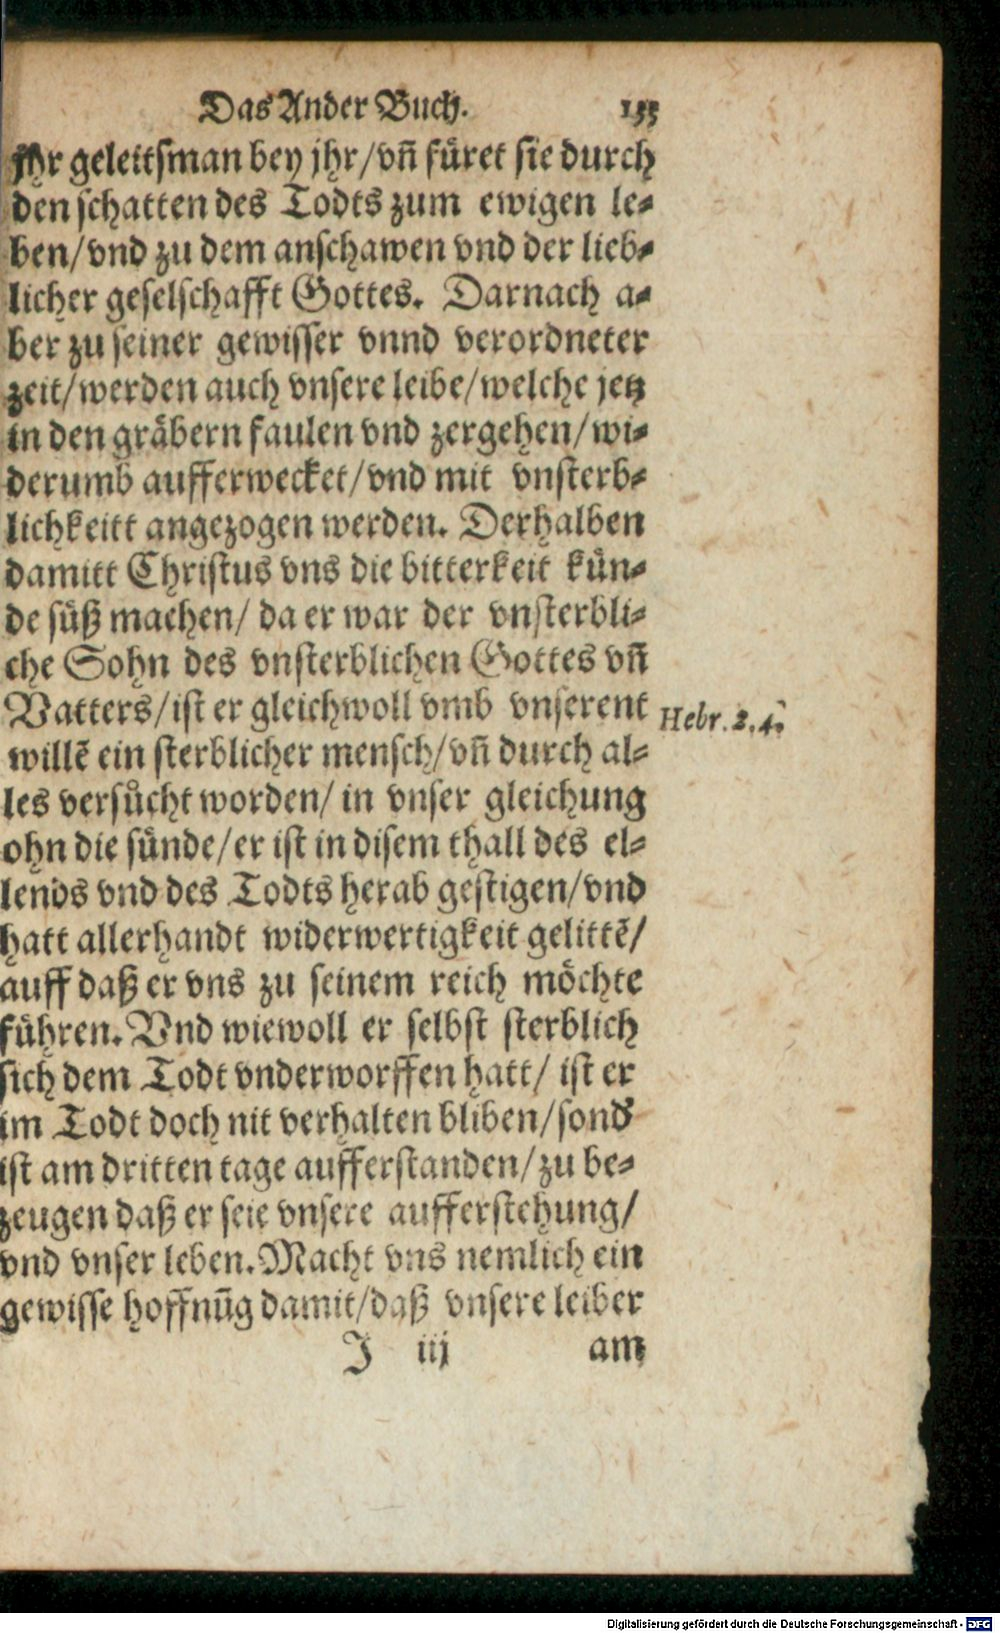 Das Ander Buch. 133
jhr geleitsman bey jhr/vñ füret sie durch
den schatten des Todts zum ewigen le-
ben/vnd zu dem anschawen vnd der lieb-
licher geselschafft Gottes. Darnach a-
ber zu seiner gewisser vnnd verordneter
zeit/werden auch vnsere leibe/welche jetz
in den gräbern faulen vnd zergehen/wi-
derumb aufferwecket/vnd mit vnsterb-
lichkeitt angezogen werden. Derhalben
damitt Christus vns die bitterkeit kün-
de süß machen/ da er war der vnsterbli-
che Sohn des vnsterblichen Gottes vñ
Vatters/ist er gleichwoll vmb vnserent
willẽ ein sterblicher mensch/vñ durch al-
les versůcht worden/ in vnser gleichung
ohn die sünde/er ist in disem thall des el-
lends vnd des Todts herab gestigen/vnd
hatt allerhandt widerwertigkeit gelittẽ/
auff daß er vns zu seinem reich möchte
führen. Vnd wiewoll er selbst sterblich
sich dem Todt vnderworffen hatt/ ist er
im Todt doch nit verhalten bliben/sond'
ist am dritten tage aufferstanden/zu be-
zeugen daß er seie vnsere aufferstehung/
vnd vnser leben. Macht vns nemlich ein
gewisse hoffnũg damit/daß vnsere leiber
J iij am
Hebr. 2. 4.
Digitalisierung gefördert durch die Deutsche Forschungsgemeinschaft - DFG